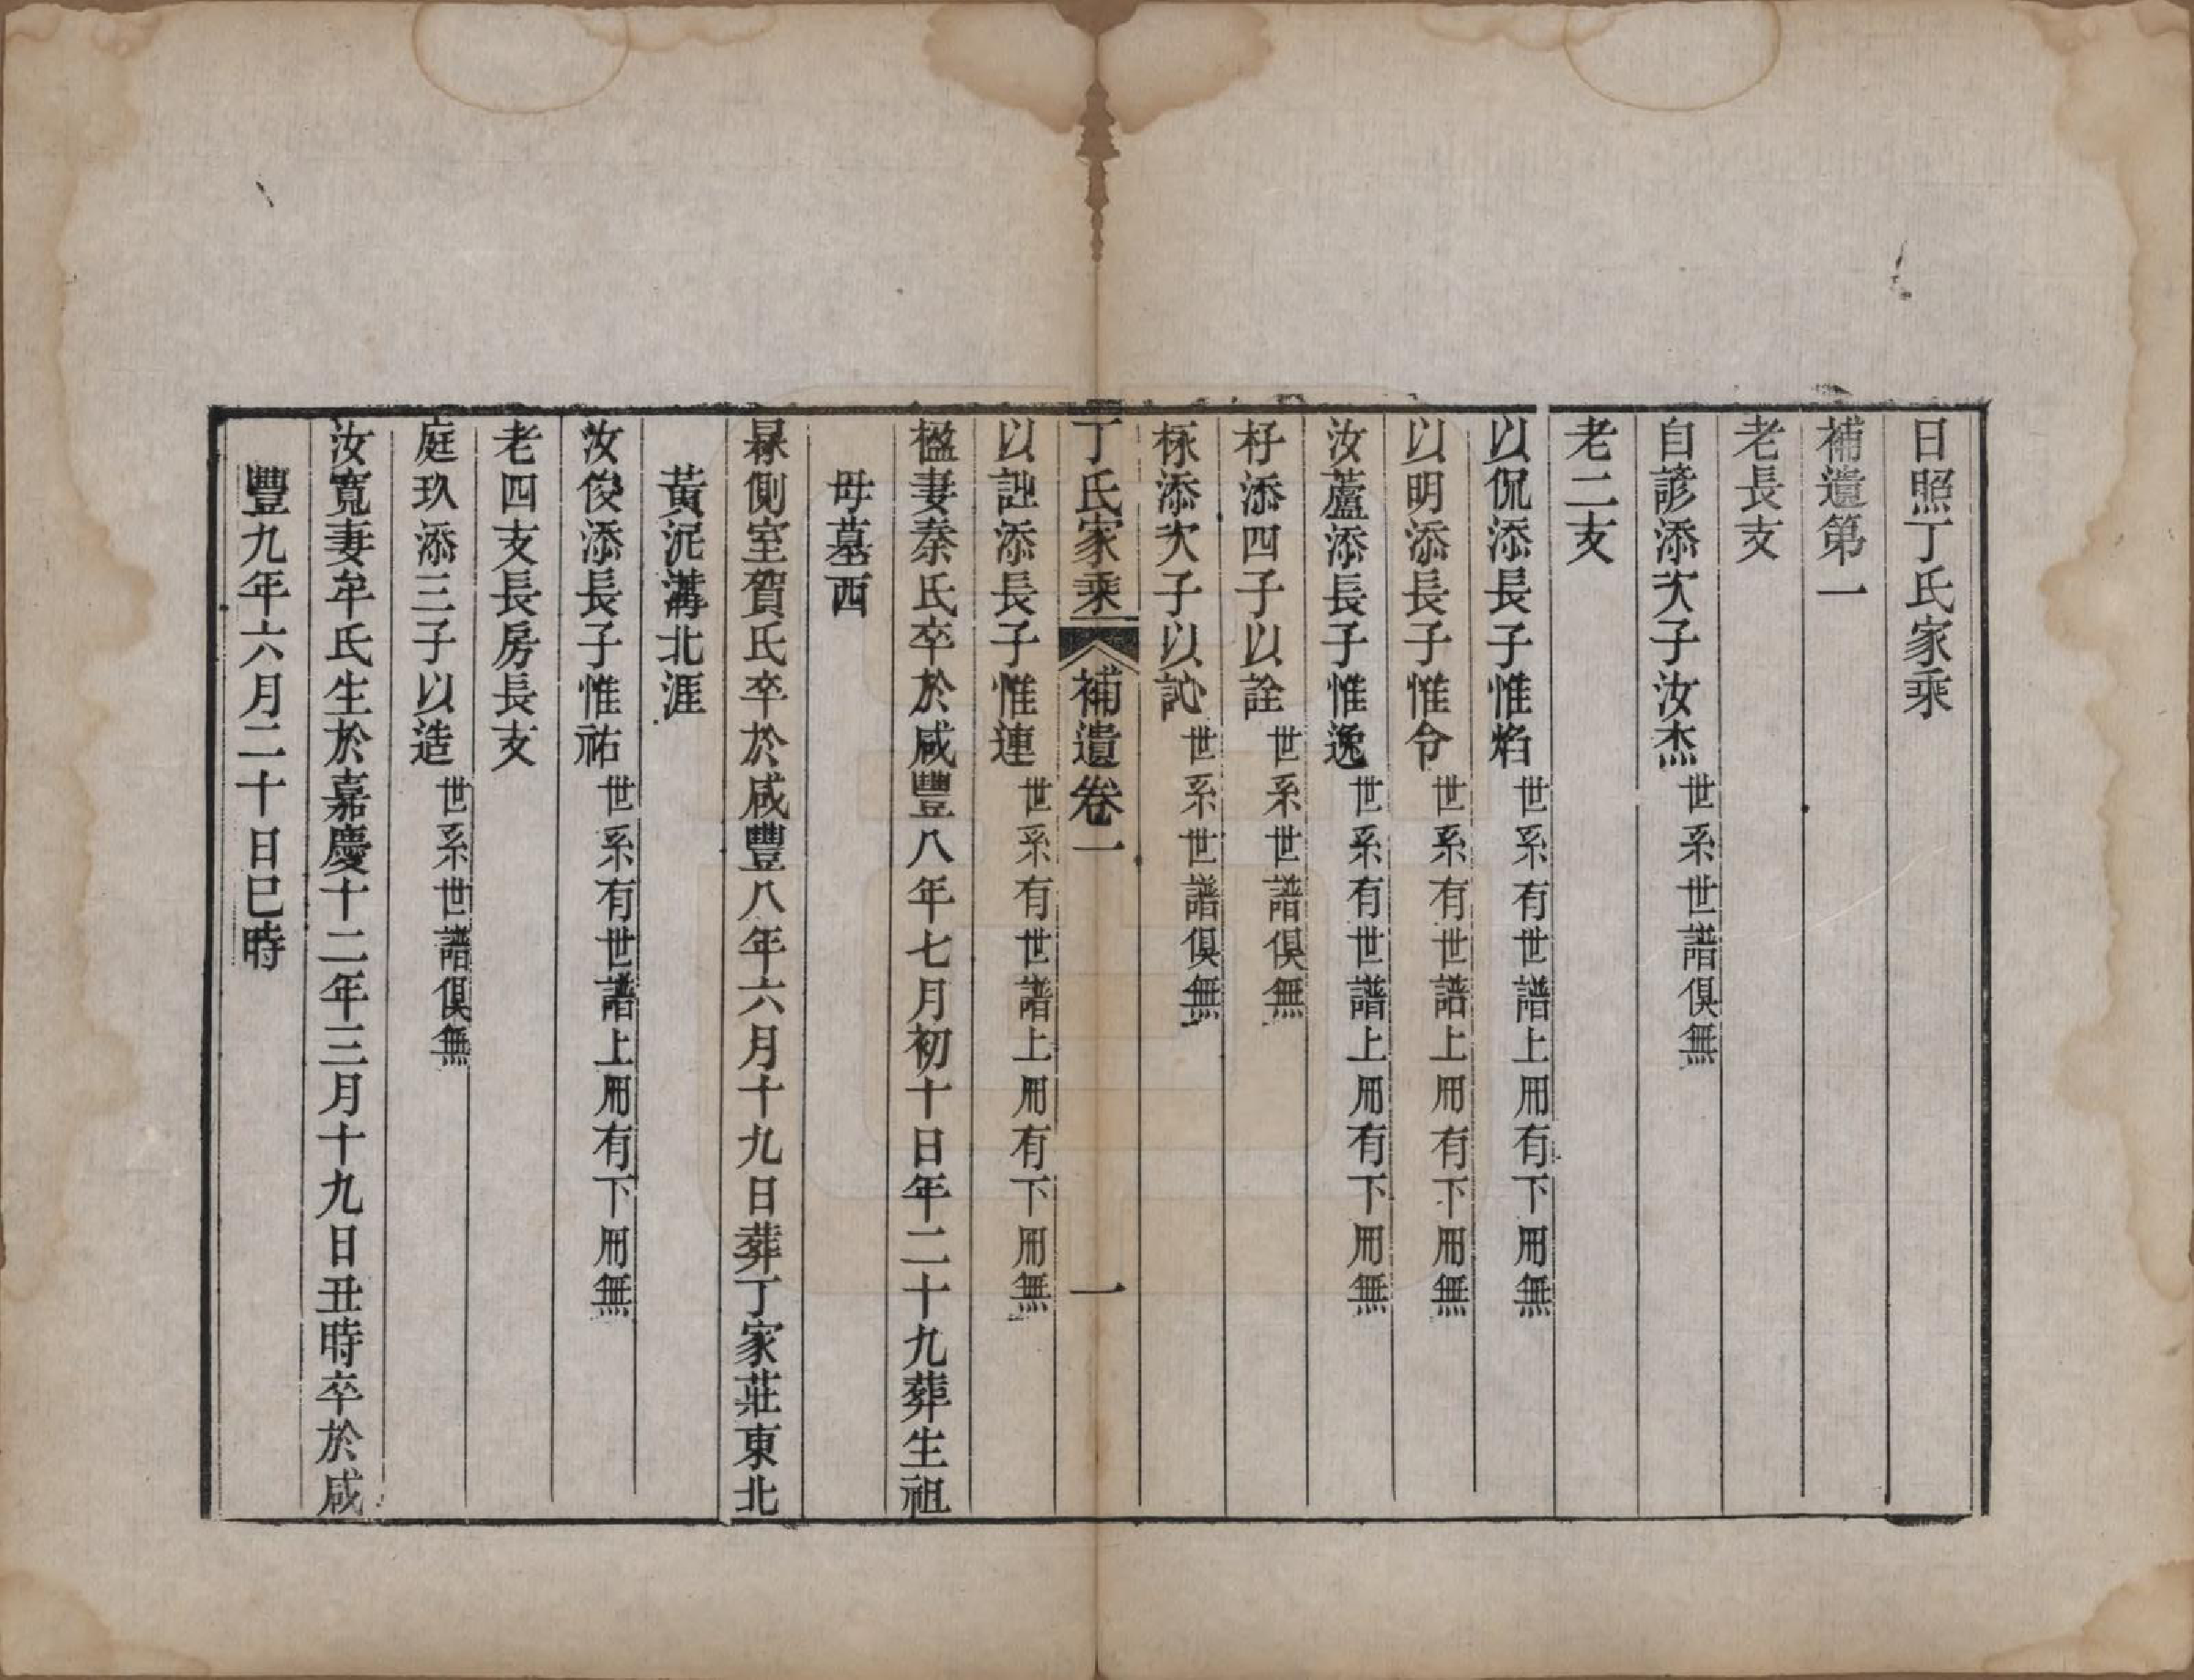 日照丁氏家乘
補遺第一
老長支
自諺添次子汝杰世系世譜俱無
老二支
以侃添長子惟焰世系有世譜上冊有下冊無
以明添長子惟令世系有世譜上冊有下冊無
汝蘆添長子惟逸世系有世譜上冊有下冊無
杍添四子以詮世系世譜俱無
椓添次子以訫世系世譜俱無
丁氏家乘 補遺卷一 一
以詿添長子惟連世系有世譜上冊有下冊無
楹妻秦氏卒於咸豐八年七月初十日年二十九葬生祖
母墓西
㬅側室賀氏卒於咸豐八年六月十九日葬丁家莊東北
黃泥溝北涯
汝俊添長子惟祐世系有世譜上冊有下冊無
老四支長房長支
庭玖添三子以造世系世譜俱無
汝寬妻牟氏生於嘉慶十二年三月十九日丑時卒於咸
豐九年六月二十日巳時